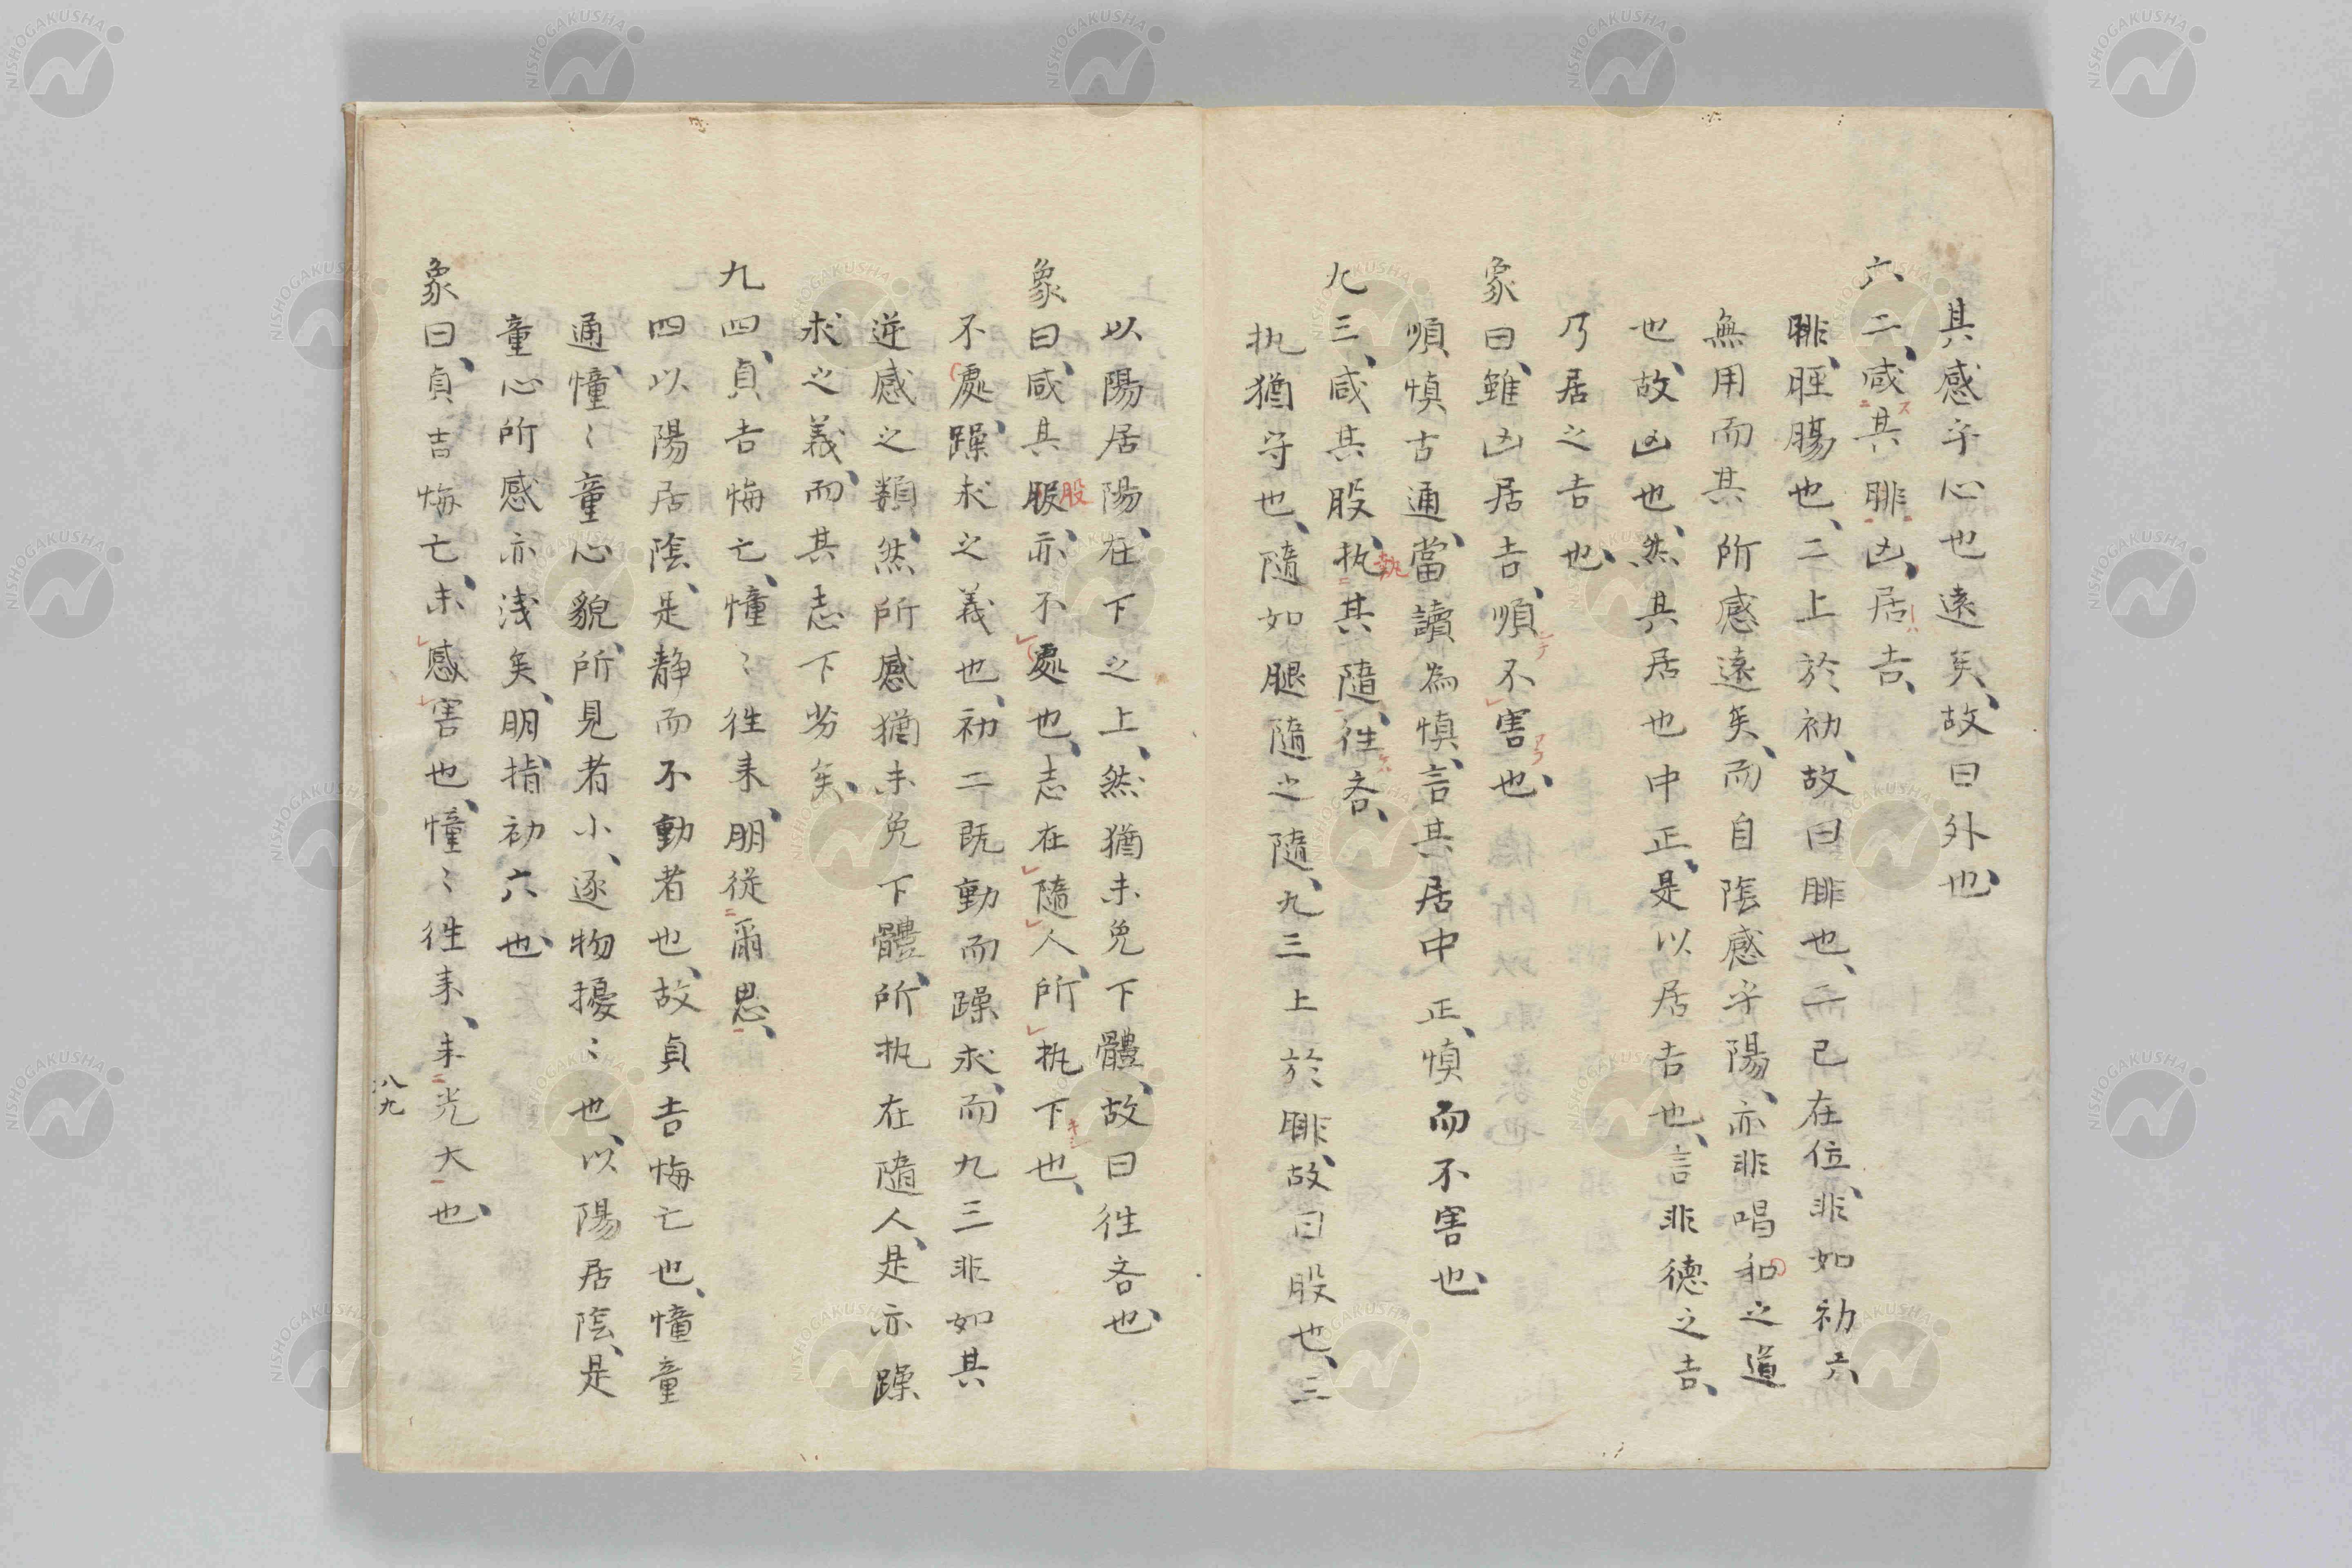 其感乎心也遠矣、故曰外也、
六二、咸其腓、凶、居吉、
腓、脛腸也、二上於初、故曰腓也、二已在位、非如初六、
無用而其所感遠矣、而自陰感乎陽、亦非唱和之道
也、故凶也、然其居也中正、是以居吉也、言非德之吉、
乃居之吉也、
象曰、雖凶居吉、順不害也、
順慎古通、當讀為慎、言其居中正、慎而不害也、
九三、咸其股、执其隨、往吝、
执猶守也、隨如腿隨之隨、九三上於腓、故曰股也、三
以陽居陽、在下之上、然猶未免下體、故曰往吝也、
象曰、咸其股、亦不處也、志在隨人、所执下也、
不處、躁求之義也、初二既動而躁求、而九三非如其
逆感之類、然所感猶未免下體、所执在隨人、是亦躁
求之義、而其志下劣矣、
九四、貞吉悔亡、憧〻往来、朋從爾思、
四以陽居陰、是静而不動者也、故貞吉悔亡也、憧童
通、憧〻童心貌、所見者小、逐物擾〻也、以陽居陰、是
童心所感亦浅矣、朋、指初六也、
象曰、貞吉悔亡、未感害也、憧〻往来、未光大也、
八九
NISHOGAKUSHA